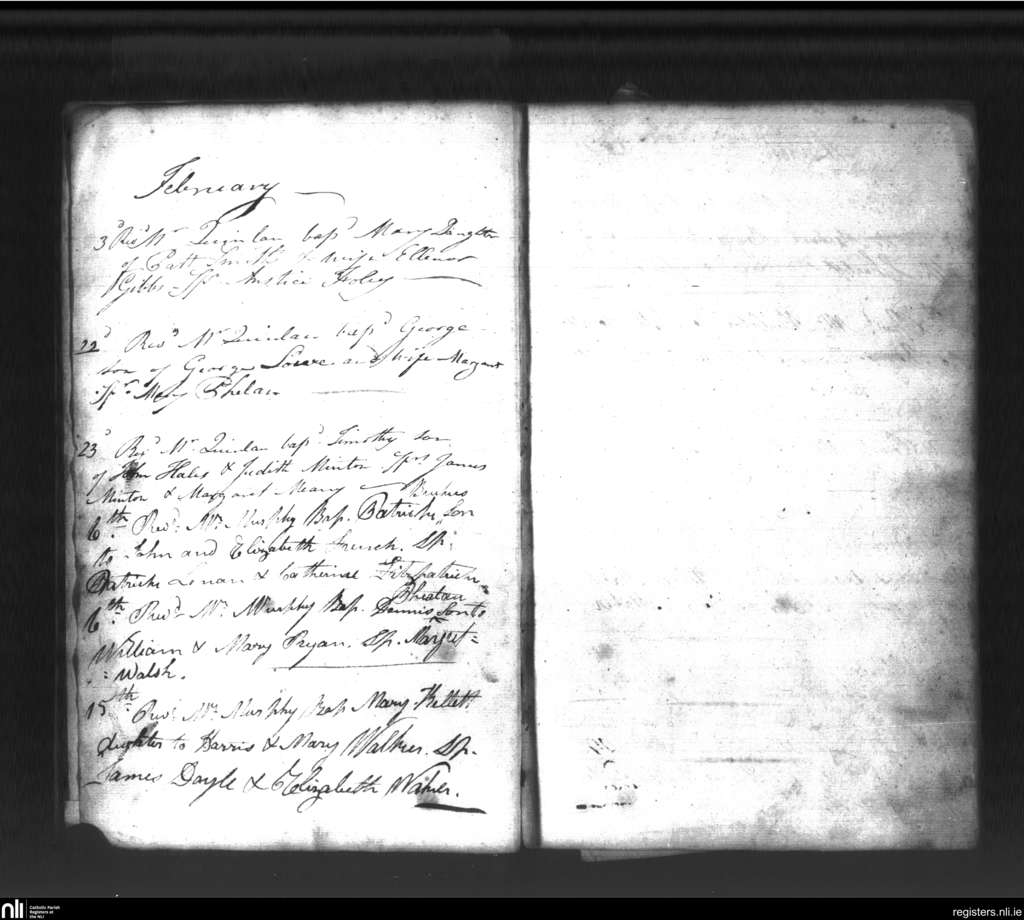 February
3d Revd Mr Quinlan bapd Mary Daughter
of Patt Smith & wife Ellenor
Gibbs Sps Anstice Foley
22d Revd Mr Quinlan bapd George
son of George Lowe and wife Margaret
Sps Mary Phelan
23d Revd Mr Quinlan bapd Timothy son
of John Hales & Judith Minton Sps James
Minton & Margaret Meany
6th Revd Mr Murphy Bap. Patrick son
to John and Elizabeth French. Sp.
Patrick Lenan & Catherine Fitzpatrick
Phealan
16th Revd Mr Murphy Bap. Dennis Son to
William & Mary Pryan. Sp. Margret
Walsh.
15th Revd Mr Murphy Bap Mary Kellett
daughter to Harris & Mary Walker. Sp.
James Doyle & Elizabeth
nli
Catholic Parish
Registers at
the NLI
registers.nli.ie